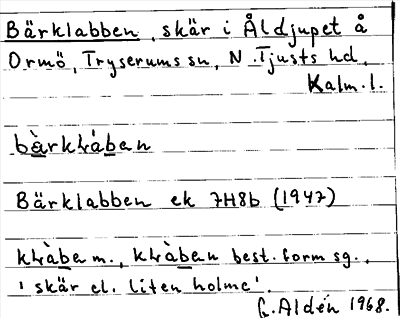 Bärklabben, skär i Åldjupet å
Ormö, Tryserums sn, N. Tjusts hd,
Kalm. l.
Bärklabben ek 7H8b (1947)
best. form sg.,
'skär el. liten holme'.
G. Aldén 1968.